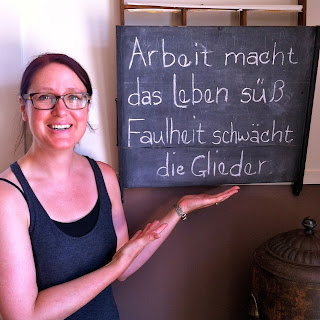 Arbeit macht
das Leben süß
Faulheit schwächt
die Glieder